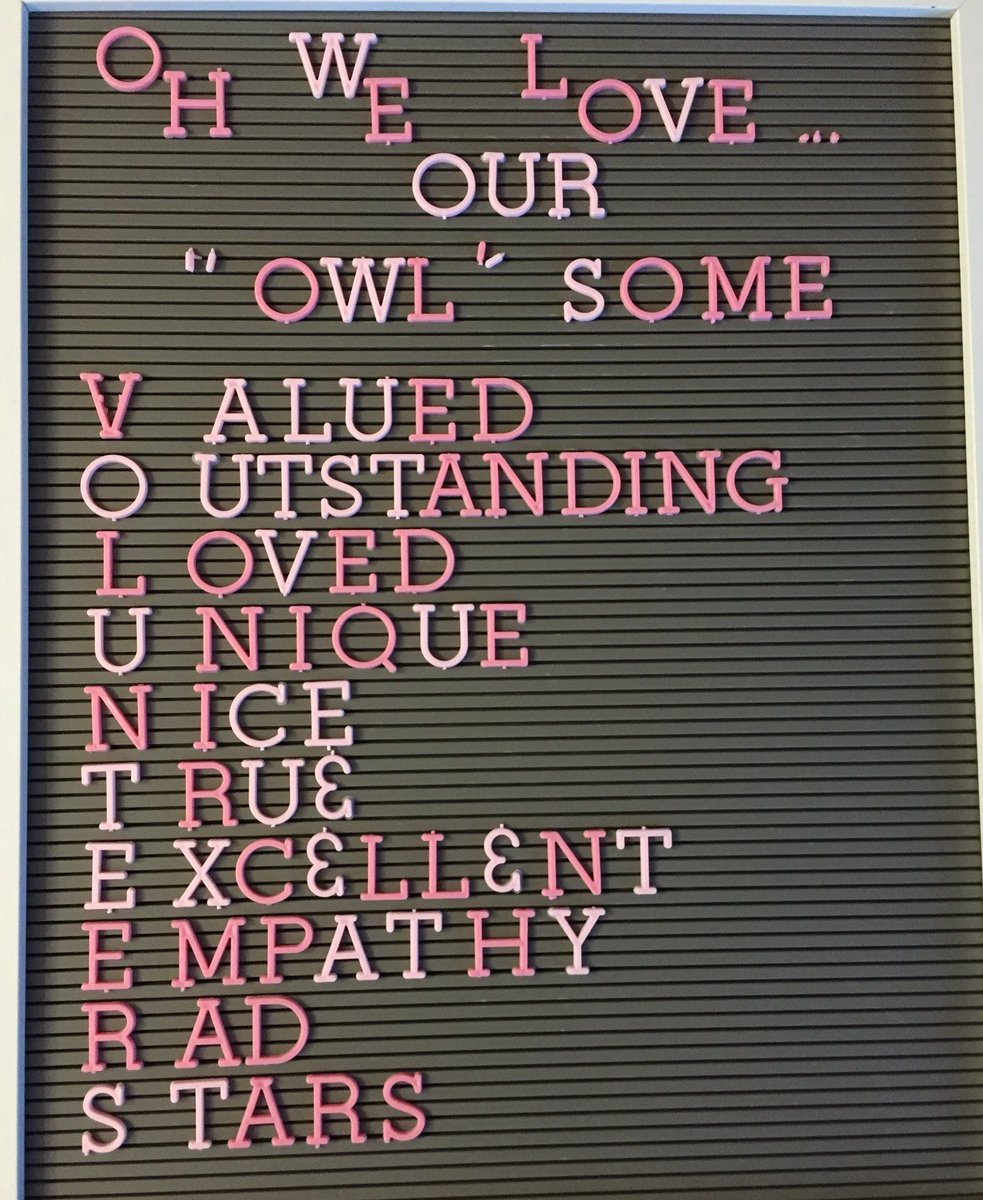 OH WE LOVE ...
OUR
"OWL" SOME
V ALUED
O UTSTANDING
L OVED
U NIQUE
N ICE
T RU&
E XC&LL&NT
E MPATHY
R AD
S TARS